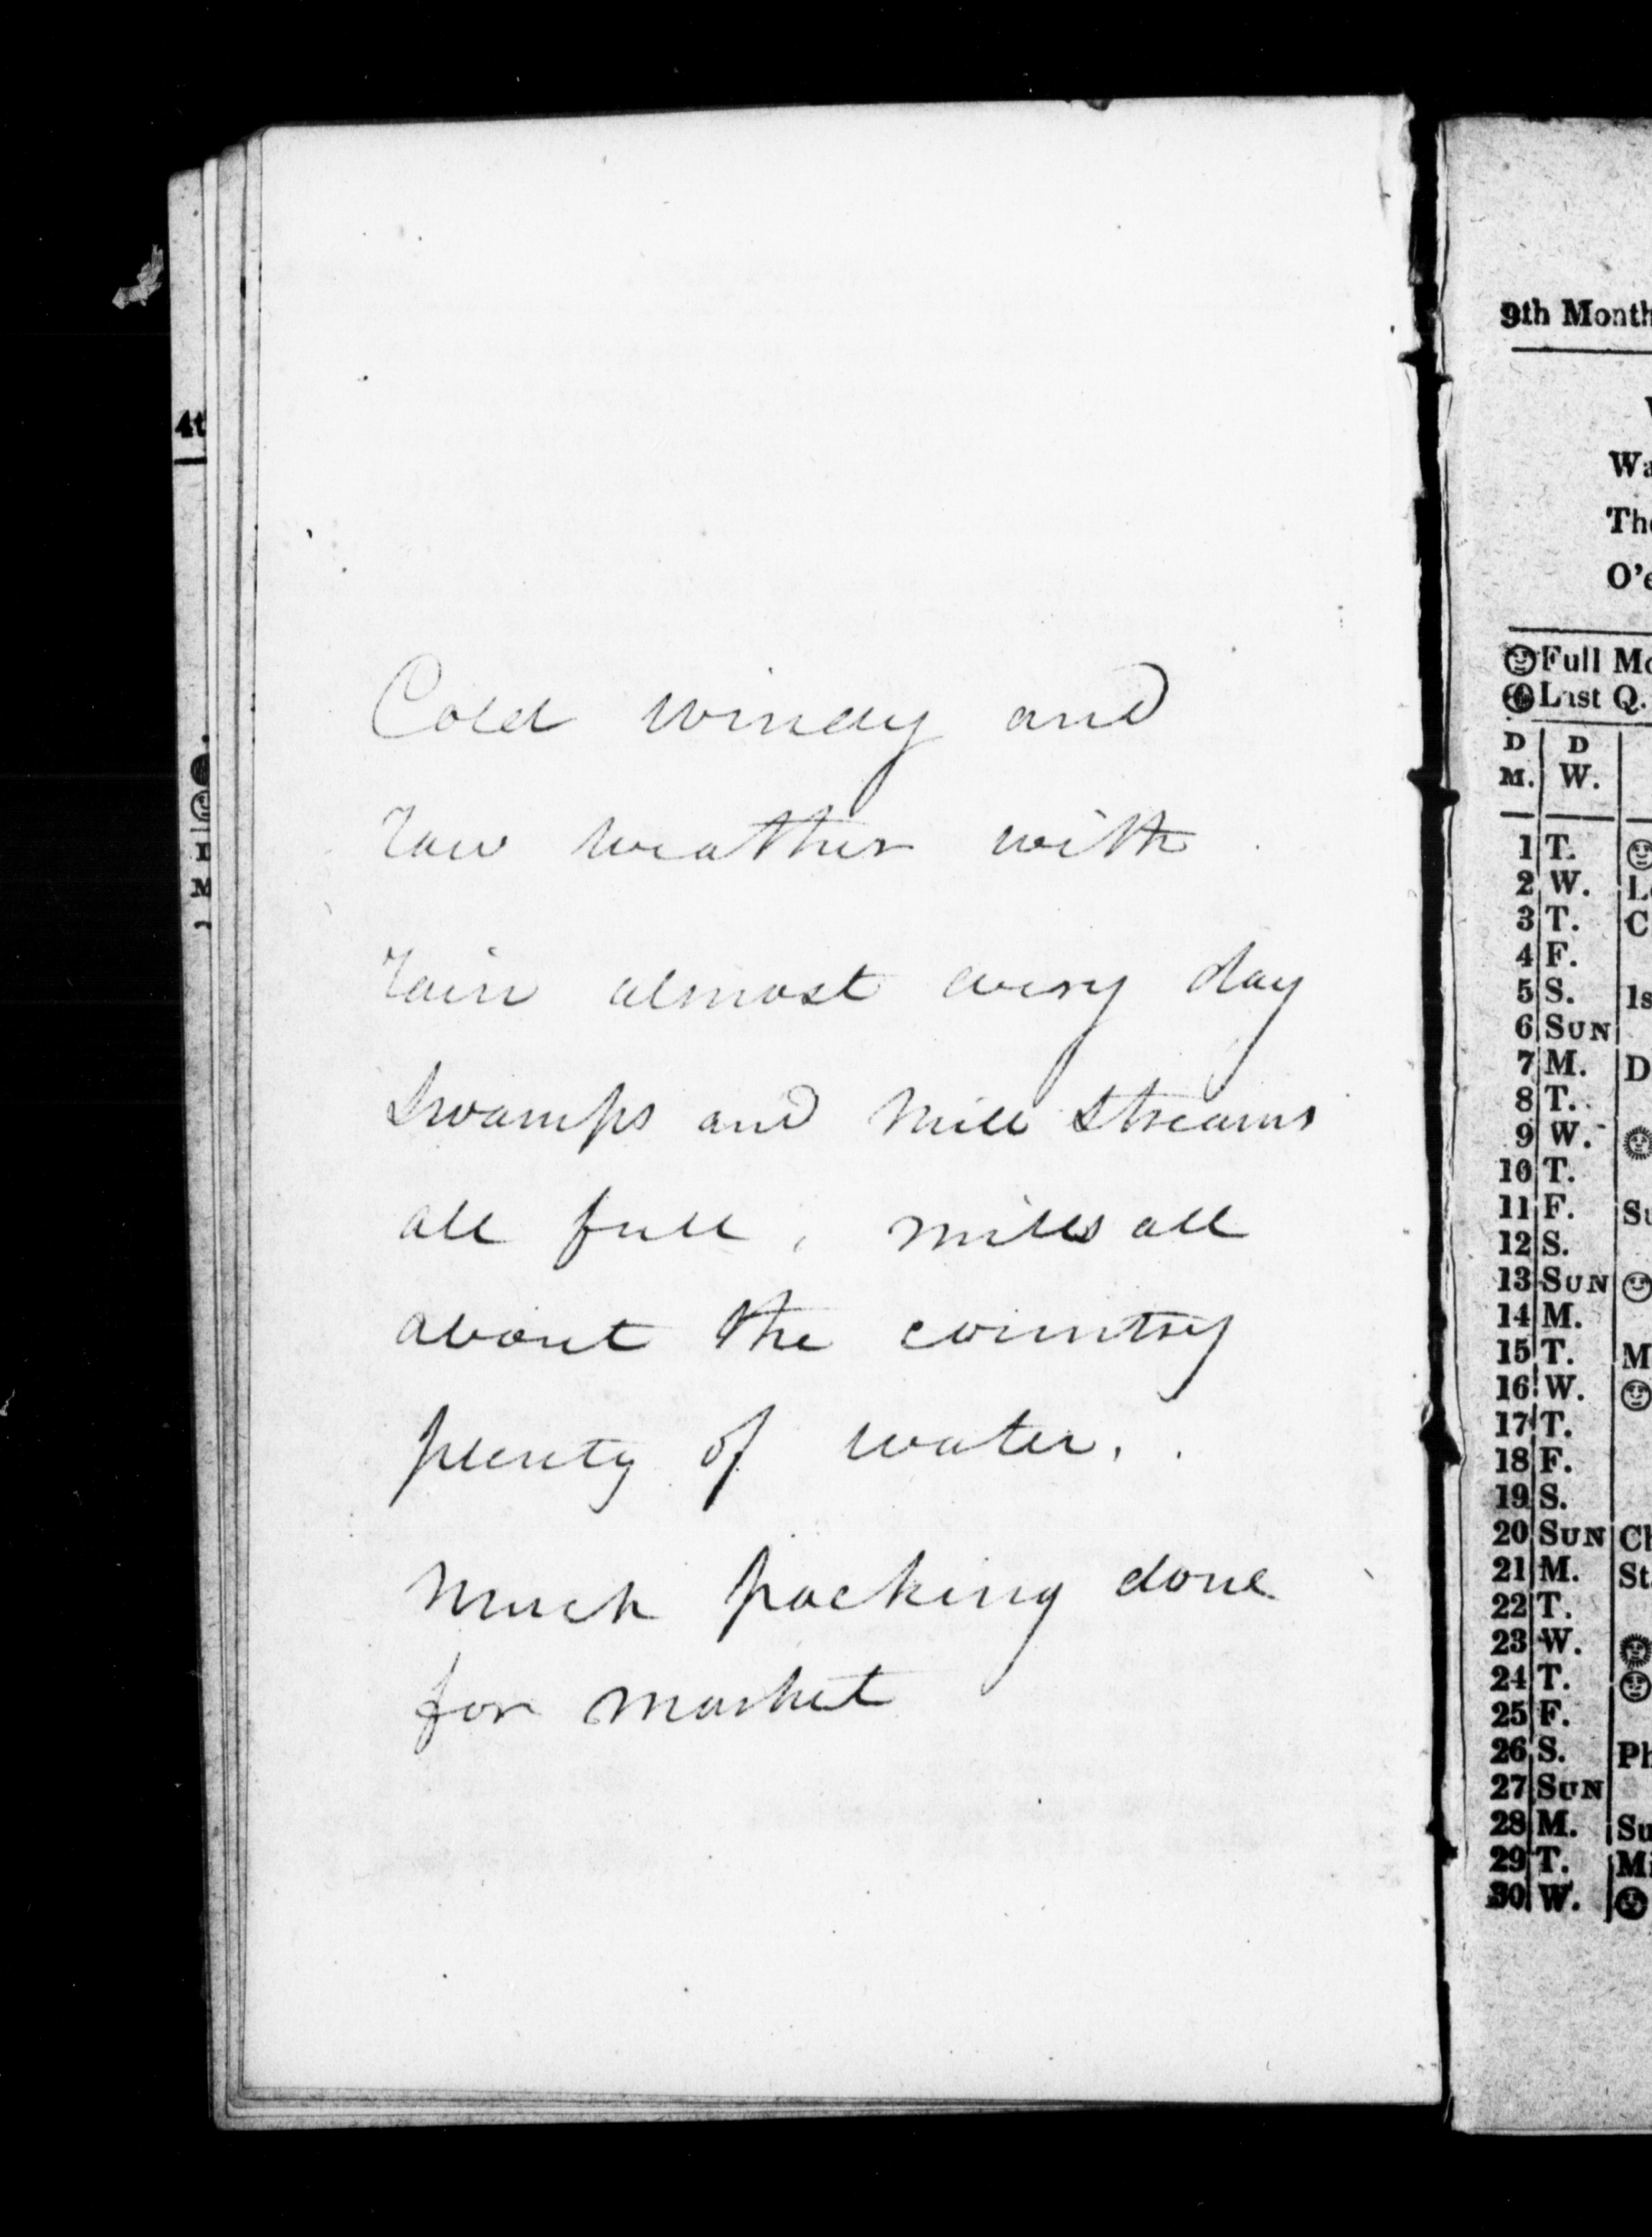 Cold windy and
raw weather with
rain almost every day
Swamps and Mill Streams
all full, mills all
about the country
plenty of water.
Much packing done
for market
4t
M
9th Month
Wa
The
O'e
Full Mo
Last Q.
D D
M. W.
1 T.
2 W. L
3 T. C
4 F.
5 S. 1s
6 SUN
7 M. D
8 T.
9 W.
10 T.
11 F. Su
12 S.
13 SUN
14 M.
15 T. M
16 W.
17 T.
18 F.
19 S.
20 SUN Ch
21 M. St
22 T.
23 W.
24 T.
25 F.
26 S. Ph
27 SUN
28 M. Su
29 T. Mi
30 W.